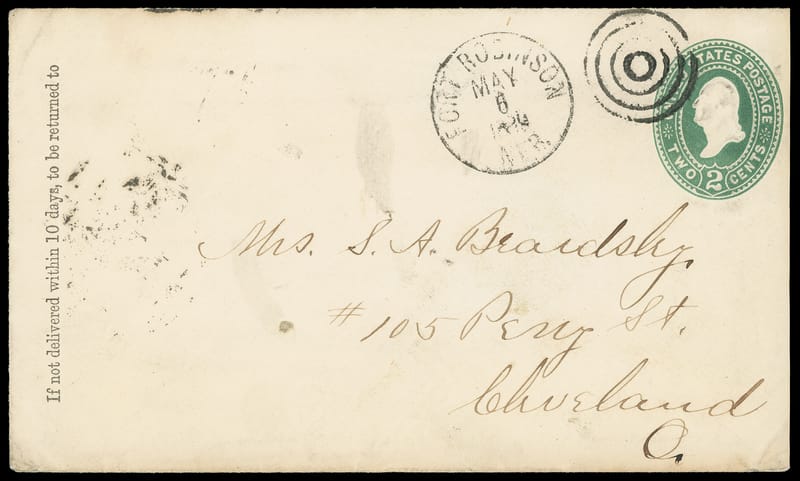 If not delivered within 10 days, to be returned to
FORT ROBINSON
MAY
6
NEB.
STATES POSTAGE
TWO 2 CENTS
Mrs. S. A. Beardsley
#105 Perry St.
Cleveland
O.